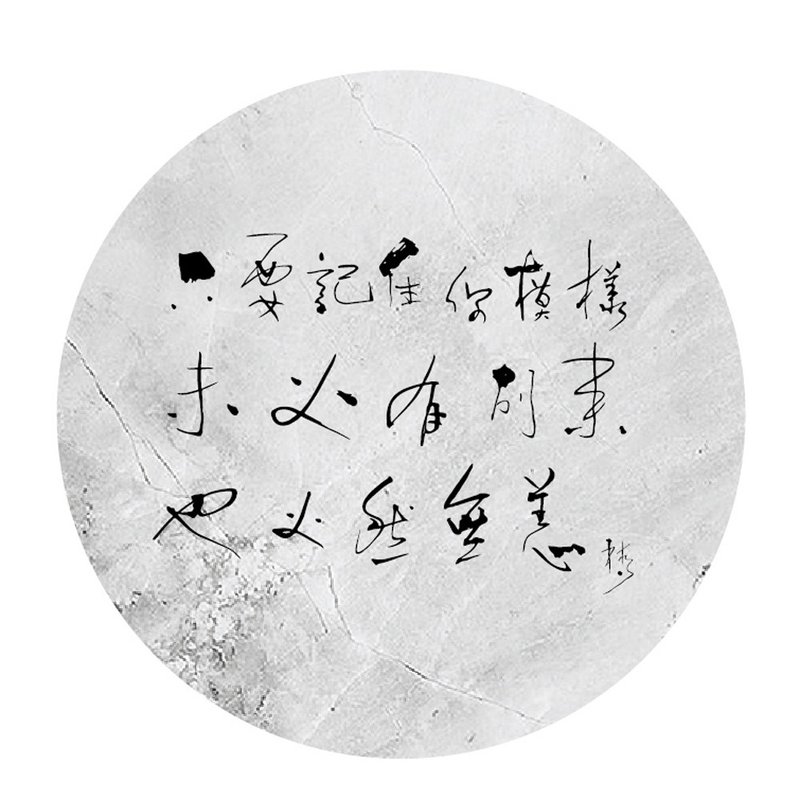 只要記住你模樣
未必有別來
也必然無恙